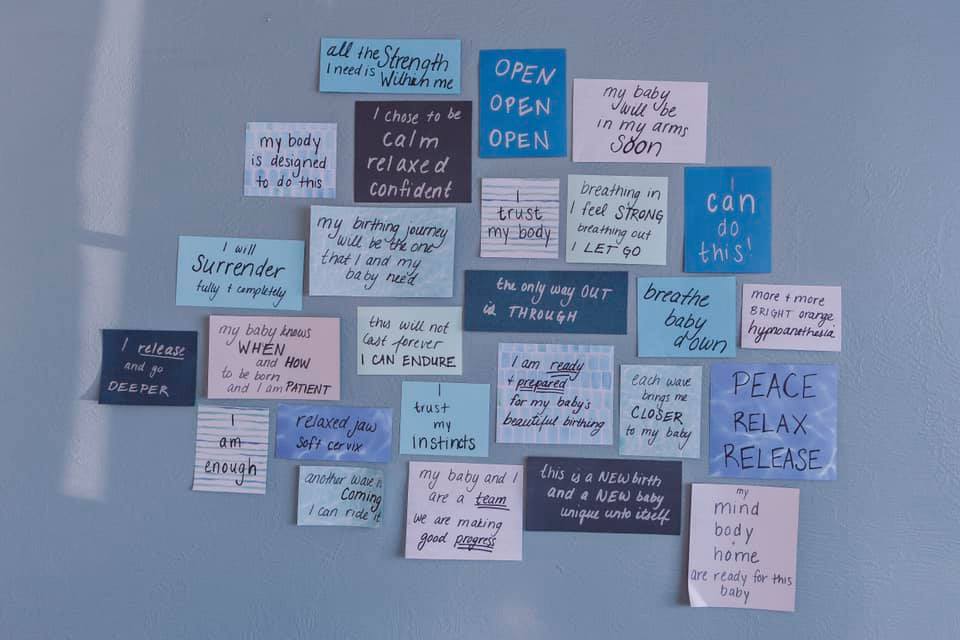 all the Strength
I need is Within me
OPEN
OPEN
OPEN
my baby
will be
in my arms
Soon
I chose to be
calm
relaxed
confident
my body
is designed
to do this
I
trust
my body
breathing in
I feel STRONG
breathing out
I LET GO
I
can
do
this!
my birthing journey
will be the one
that I and my
baby need
I will
Surrender
fully + completely
the only way OUT
is THROUGH
breathe
baby
down
more + more
BRIGHT orange
hypnoanethesia
this will not
last forever
I CAN ENDURE
my baby knows
WHEN
and HOW
to be born
and I am PATIENT
I release
and go
DEEPER
I am ready
+ prepared
for my baby's
beautiful birthing
each wave
brings me
CLOSER
to my baby
PEACE
RELAX
RELEASE
I
trust
my
Instincts
relaxed jaw
soft cervix
I
am
enough
another wave is
Coming
I can ride it
my baby and I
are a team
we are making
good progress
this is a NEW birth
and a NEW baby
unique unto itself
my
mind
body
+
home
are ready for this
baby